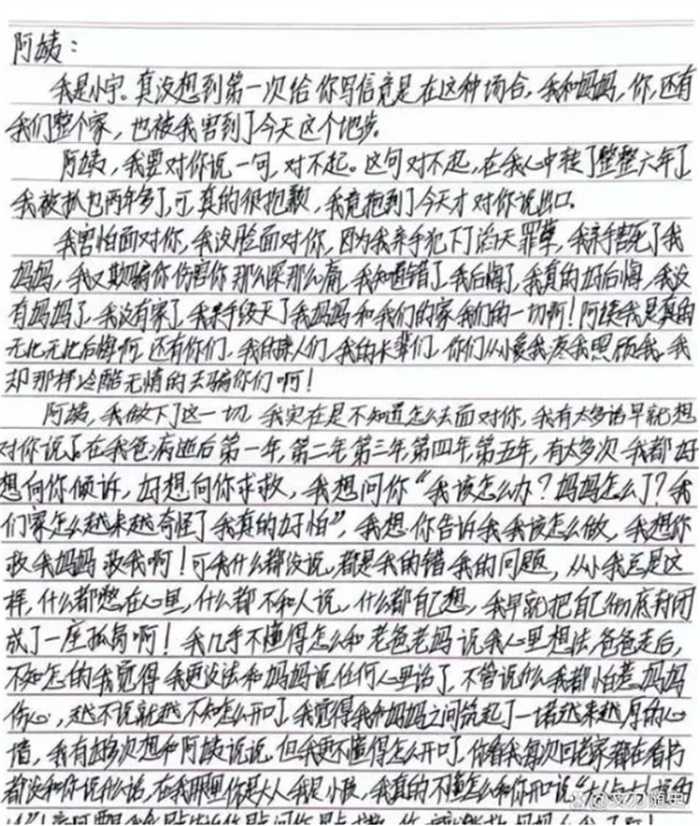 阿姨：
我是小宁。真没想到第一次给你写信竟是在这种场合，我和妈妈，你，还有
我们整个家，也被我害到了今天这个地步。
阿姨，我要对你说一句，对不起。这句对不起，在我心中转了整整六年了
我被抓也两年多了，可真的很抱歉，我竟拖到了今天才对你说出口。
我害怕面对你，我没脸面对你，因为我亲手犯下了滔天罪孽，我亲手害死了我
妈妈，我又欺骗你伤害你那么深那么痛，我知道错了，我后悔了，我真的好后悔，我没
有妈妈了，我没有家了，我亲手毁灭了我妈妈和我们的家我们的一切啊！阿姨我是真的
无比无比后悔啊，还有你们，我的亲人们，我的长辈们，你们从小爱我疼我照顾我，我
却那样冷酷无情的去骗你们啊！
阿姨，我做下了这一切，我实在是不知道怎么去面对你，我有太多话早就想
对你说了，在我爸病逝后第一年，第二年第三年第四年第五年，有太多次我都好
想向你倾诉，好想向你求救，我想问你“我该怎么办？妈妈怎么了？我
们家怎么越来越奇怪了我真的好怕”，我想你告诉我我该怎么做，我想你
救我妈妈救我啊！可我什么都没说，都是我的错我的问题，从小我总是这
样，什么都憋在心里，什么都不和人说，什么都自己想，我早就把自己彻底封闭
成了一座孤岛啊！我几乎不懂得怎么和老爸老妈说我心里想法，爸爸走后，
不知怎的我觉得我更没法和妈妈说任何心里话了，不管说什么我都怕惹妈妈
伤心，越不说就越不知怎么开口了，我觉得我和妈妈之间筑起了一堵越来越厚的心
墙，我有好多次想和阿姨说说，但我更不懂得怎么开口了，你看我每次回老家都在看书
都没和你说什么话，在我那里你是大人我是小孩，我真的不懂怎么和你开口说“大人与大人的